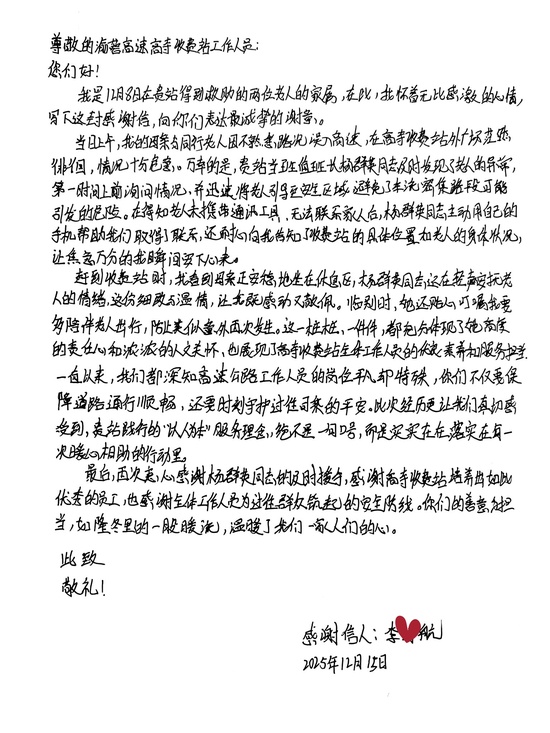 尊敬的渝蓉高速高寺收费站工作人员：
你们好！
我是12月8日在贵站得到救助的两位老人的家属，在此，我怀着无比感激的心情，
写下这封感谢信，向你们表达最诚挚的谢意。
当日上午，我的母亲与同行老人因不熟悉路况误入高速，在高寺收费站外广场
徘徊，情况十分危急。万幸的是，贵站当班值班长杨群英同志及时发现了老人的异常，
第一时间上前询问情况，并迅速将老人引导至安全区域，避免了车流密集路段可能
引发的危险。在得知老人未携带通讯工具、无法联系家人后，杨群英同志主动用自己的
手机帮助我们取得了联系，还耐心向我告知了收费站的具体位置和老人的身体状况，
让焦急万分的我瞬间安下心来。
赶到收费站时，我看到母亲正安稳地坐在休息区，杨群英同志还在轻声安抚老
人的情绪，这份细致与温情，让我既感动又敬佩。临别时，她还贴心叮嘱我要
多陪伴老人出行，防止类似意外再次发生。这一桩桩、一件件，都充分体现了她高度
的责任心和浓浓的人文关怀，也展现了高寺收费站全体工作人员的优良素养和服务担当。
一直以来，我们都深知高速公路工作人员的岗位平凡却特殊，你们不仅要保
障道路通行顺畅，还要时刻守护过往司乘的平安。此次经历更让我们真切感
受到，贵站践行的“以人为本”服务理念，绝不是一句口号，而是实实在在落实在每一
次暖心相助的行动里。
最后，再次衷心感谢杨群英同志的及时援手，感谢高寺收费站培养出如此
优秀的员工，也感谢全体工作人员为过往群众筑起的安全防线。你们的善意与担
当，如隆冬里的一股暖流，温暖了我们一家人们的心。
此致
敬礼！
感谢信人：李 航
2025年12月15日